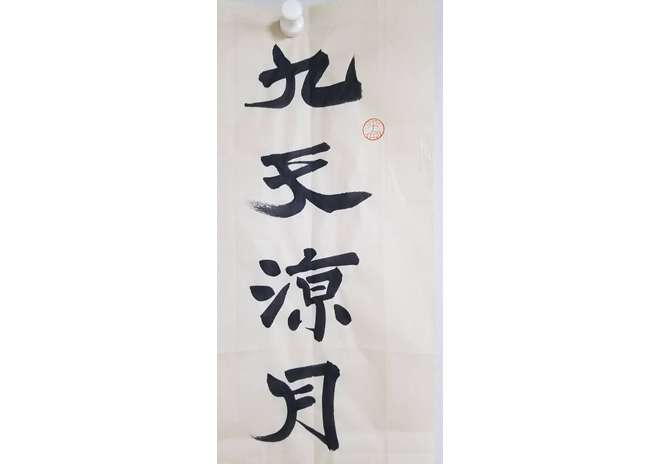 九天涼月